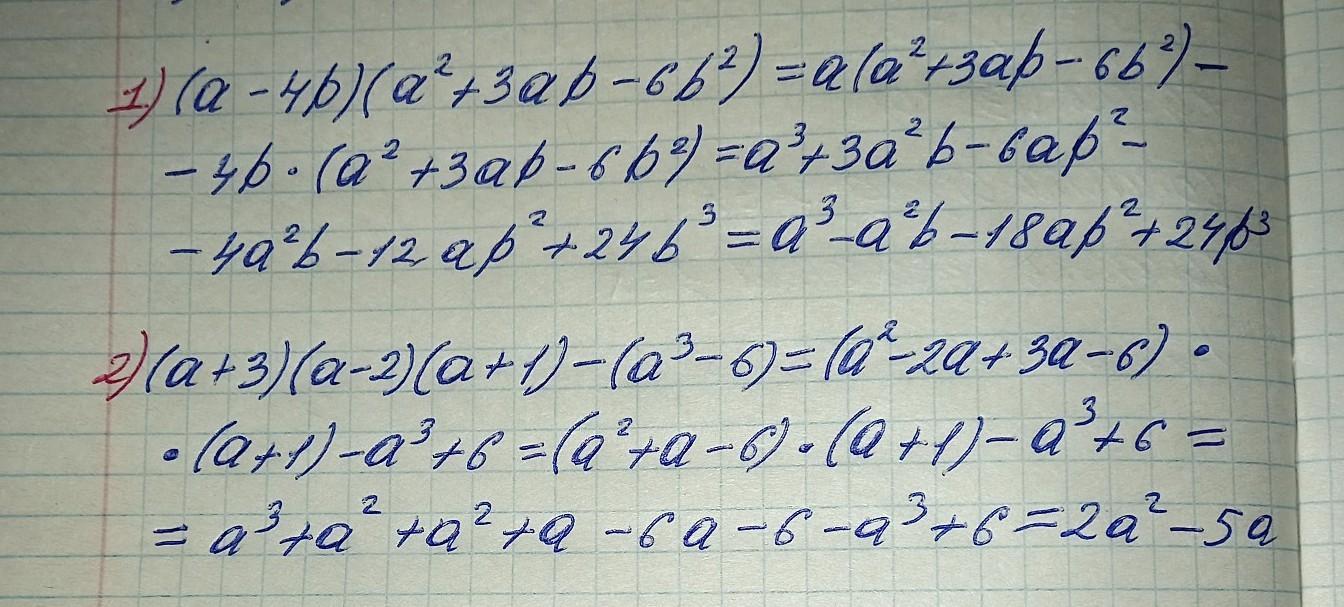 1) (a - 4b)(a² + 3ab - 6b²) = a(a² + 3ab - 6b²) -
- 4b · (a² + 3ab - 6b²) = a³ + 3a²b - 6ab² -
- 4a²b - 12ab² + 24b³ = a³ - a²b - 18ab² + 24b³
2) (a + 3)(a - 2)(a + 1) - (a³ - 6) = (a² - 2a + 3a - 6) ·
· (a + 1) - a³ + 6 = (a² + a - 6) · (a + 1) - a³ + 6 =
= a³ + a² + a² + a - 6a - 6 - a³ + 6 = 2a² - 5a